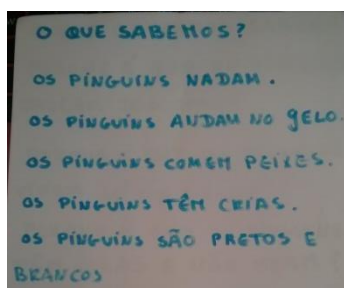 O QUE SABEMOS?
OS PINGUINS NADAM.
OS PINGUINS ANDAM NO GELO.
OS PINGUINS COMEM PEIXES.
OS PINGUINS TÊM CRIAS.
OS PINGUINS SÃO PRETOS E
BRANCOS